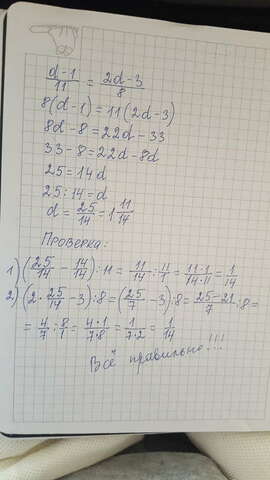 d-1/11 = 2d-3/8
8(d-1)=11(2d-3)
8d-8=22d-33
33-8=22d-8d
25=14d
25:14=d
d=25/14=1 11/14
Проверка:
1) (25/14 - 14/14):11 = 11/14 : 11/1 = 11·1/14·11 = 1/14
2) (2·25/14 -3):8=(25/7 -3):8 = 25-21/7 :8=
= 4/7 : 8/1 = 4·1/7·8 = 1/7·2 = 1/14
Всё правильно!!!!